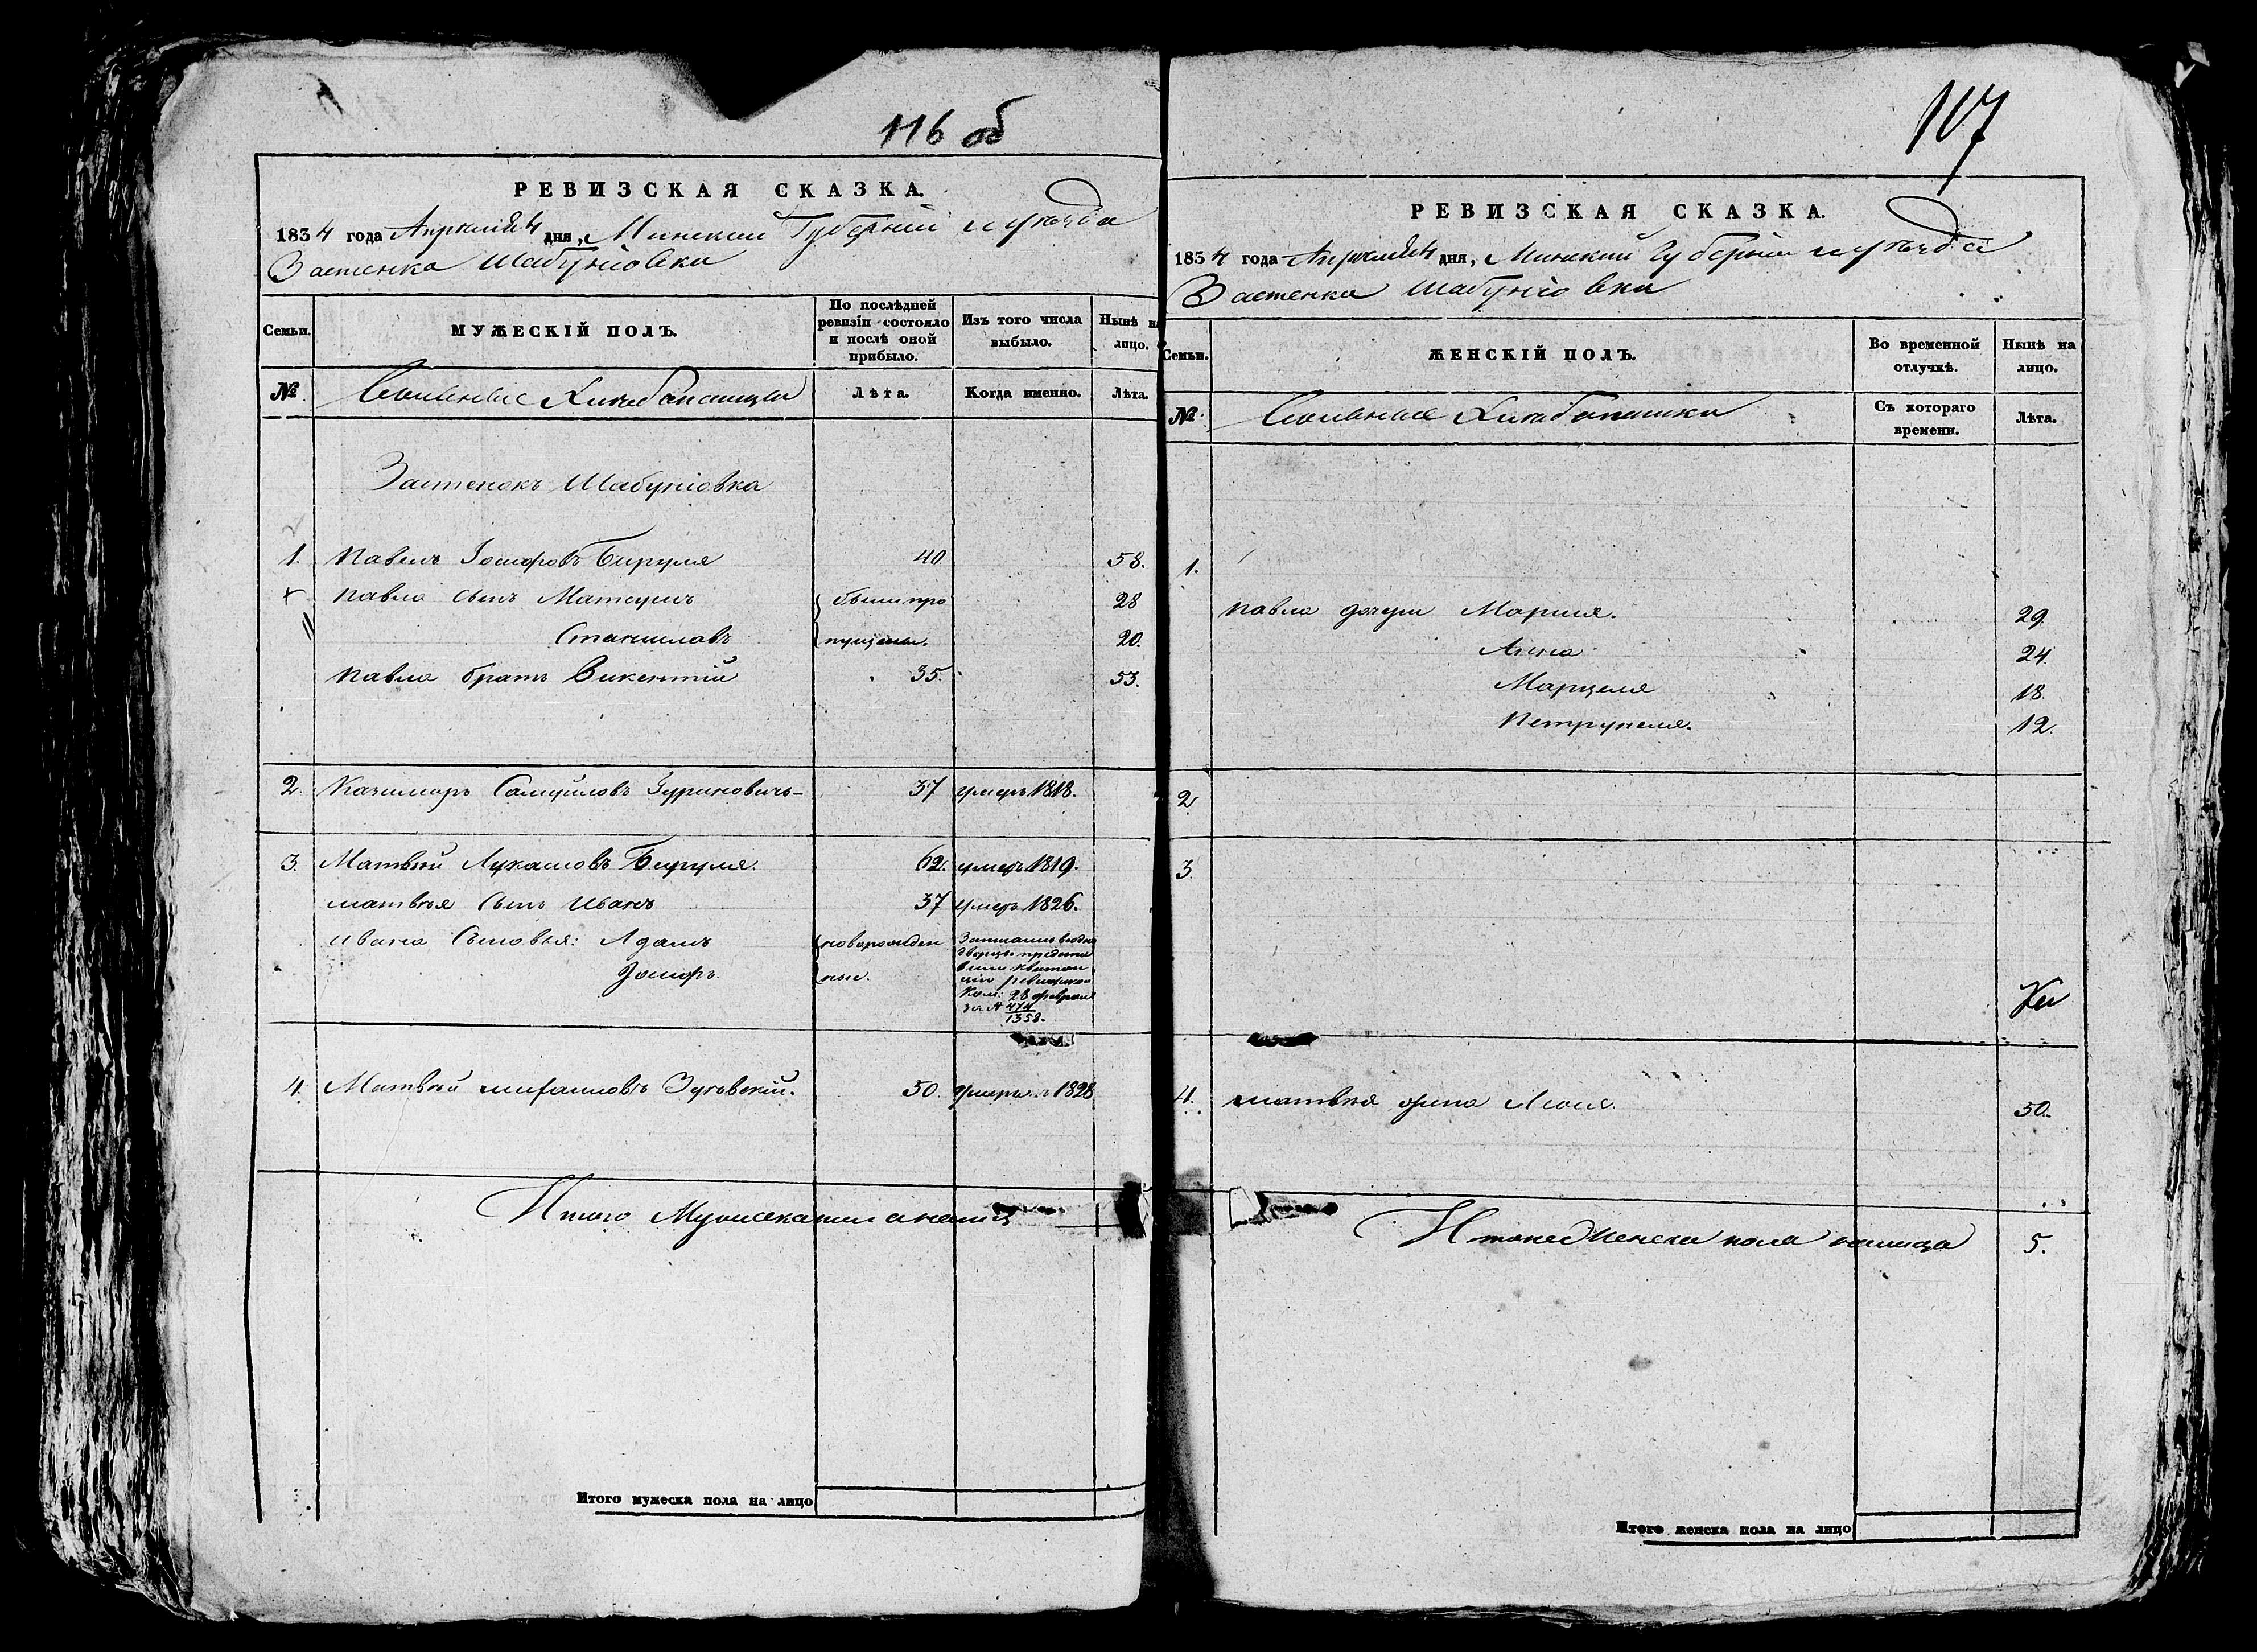 116 об
РЕВИЗСКАЯ СКАЗКА.
1834 года Апреля 24 дня, Минской Губерніи и уѣзда
Застенка Шабуніовки
Семьи.
МУЖЕСКІЙ ПОЛЪ.
По послѣдней ревизіи состояло и послѣ оной прибыло.
Изъ того числа выбыло.
Нынѣ на лицо.
№
Вольные Хлебопашцы
Лѣта.
Когда именно.
Лѣта.
Застенокъ Шабуніовка
1. Павелъ Іосифовъ Бируля 40 58.
Павла сынъ Матеушъ были про 28
Станиславъ пущены. 20.
Павла братъ Викентій 35. 53.
2. Казимиръ Самуиловъ 37 умеръ 1818.
3. Матвѣй Лукашовъ Бируля. 62. умеръ 1819.
Матвѣя сынъ Иванъ 37 умеръ 1826.
Ивана сыновья: Адамъ новорожден
Іосифъ ные.
28 февраля
за № 474
1358.
4. Матвѣй Михаиловъ 50. умеръ 1828
Итого Мужеска пола на лицо
Итого мужеска пола на лицо
107
РЕВИЗСКАЯ СКАЗКА.
1834 года Апреля 24 дня, Минской Губерніи и уѣзда
Застенка Шабуніовки
Семьи.
ЖЕНСКІЙ ПОЛЪ.
Во временной отлучкѣ.
Нынѣ на лицо.
№
Вольные Хлебопашцы
Съ котораго времени.
Лѣта.
1.
Павла дочери Марія. 29.
Анна 24.
Марцеля 18.
Петрунеля. 12.
2
3.
4. Матвѣя жена 50.
Итого Женска пола на лицо 5.
Итого женска пола на лицо